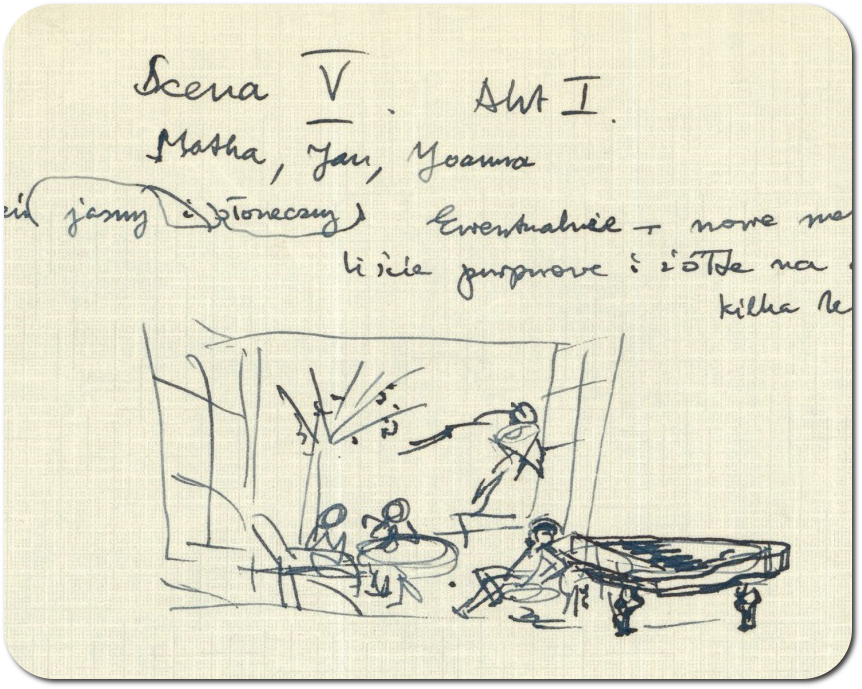 Scena V. Akt I.
Matka, Jan, Joanna
jasny i słoneczny) Ewentualnie – nowe
liście purpurowe i żółte na
kilka